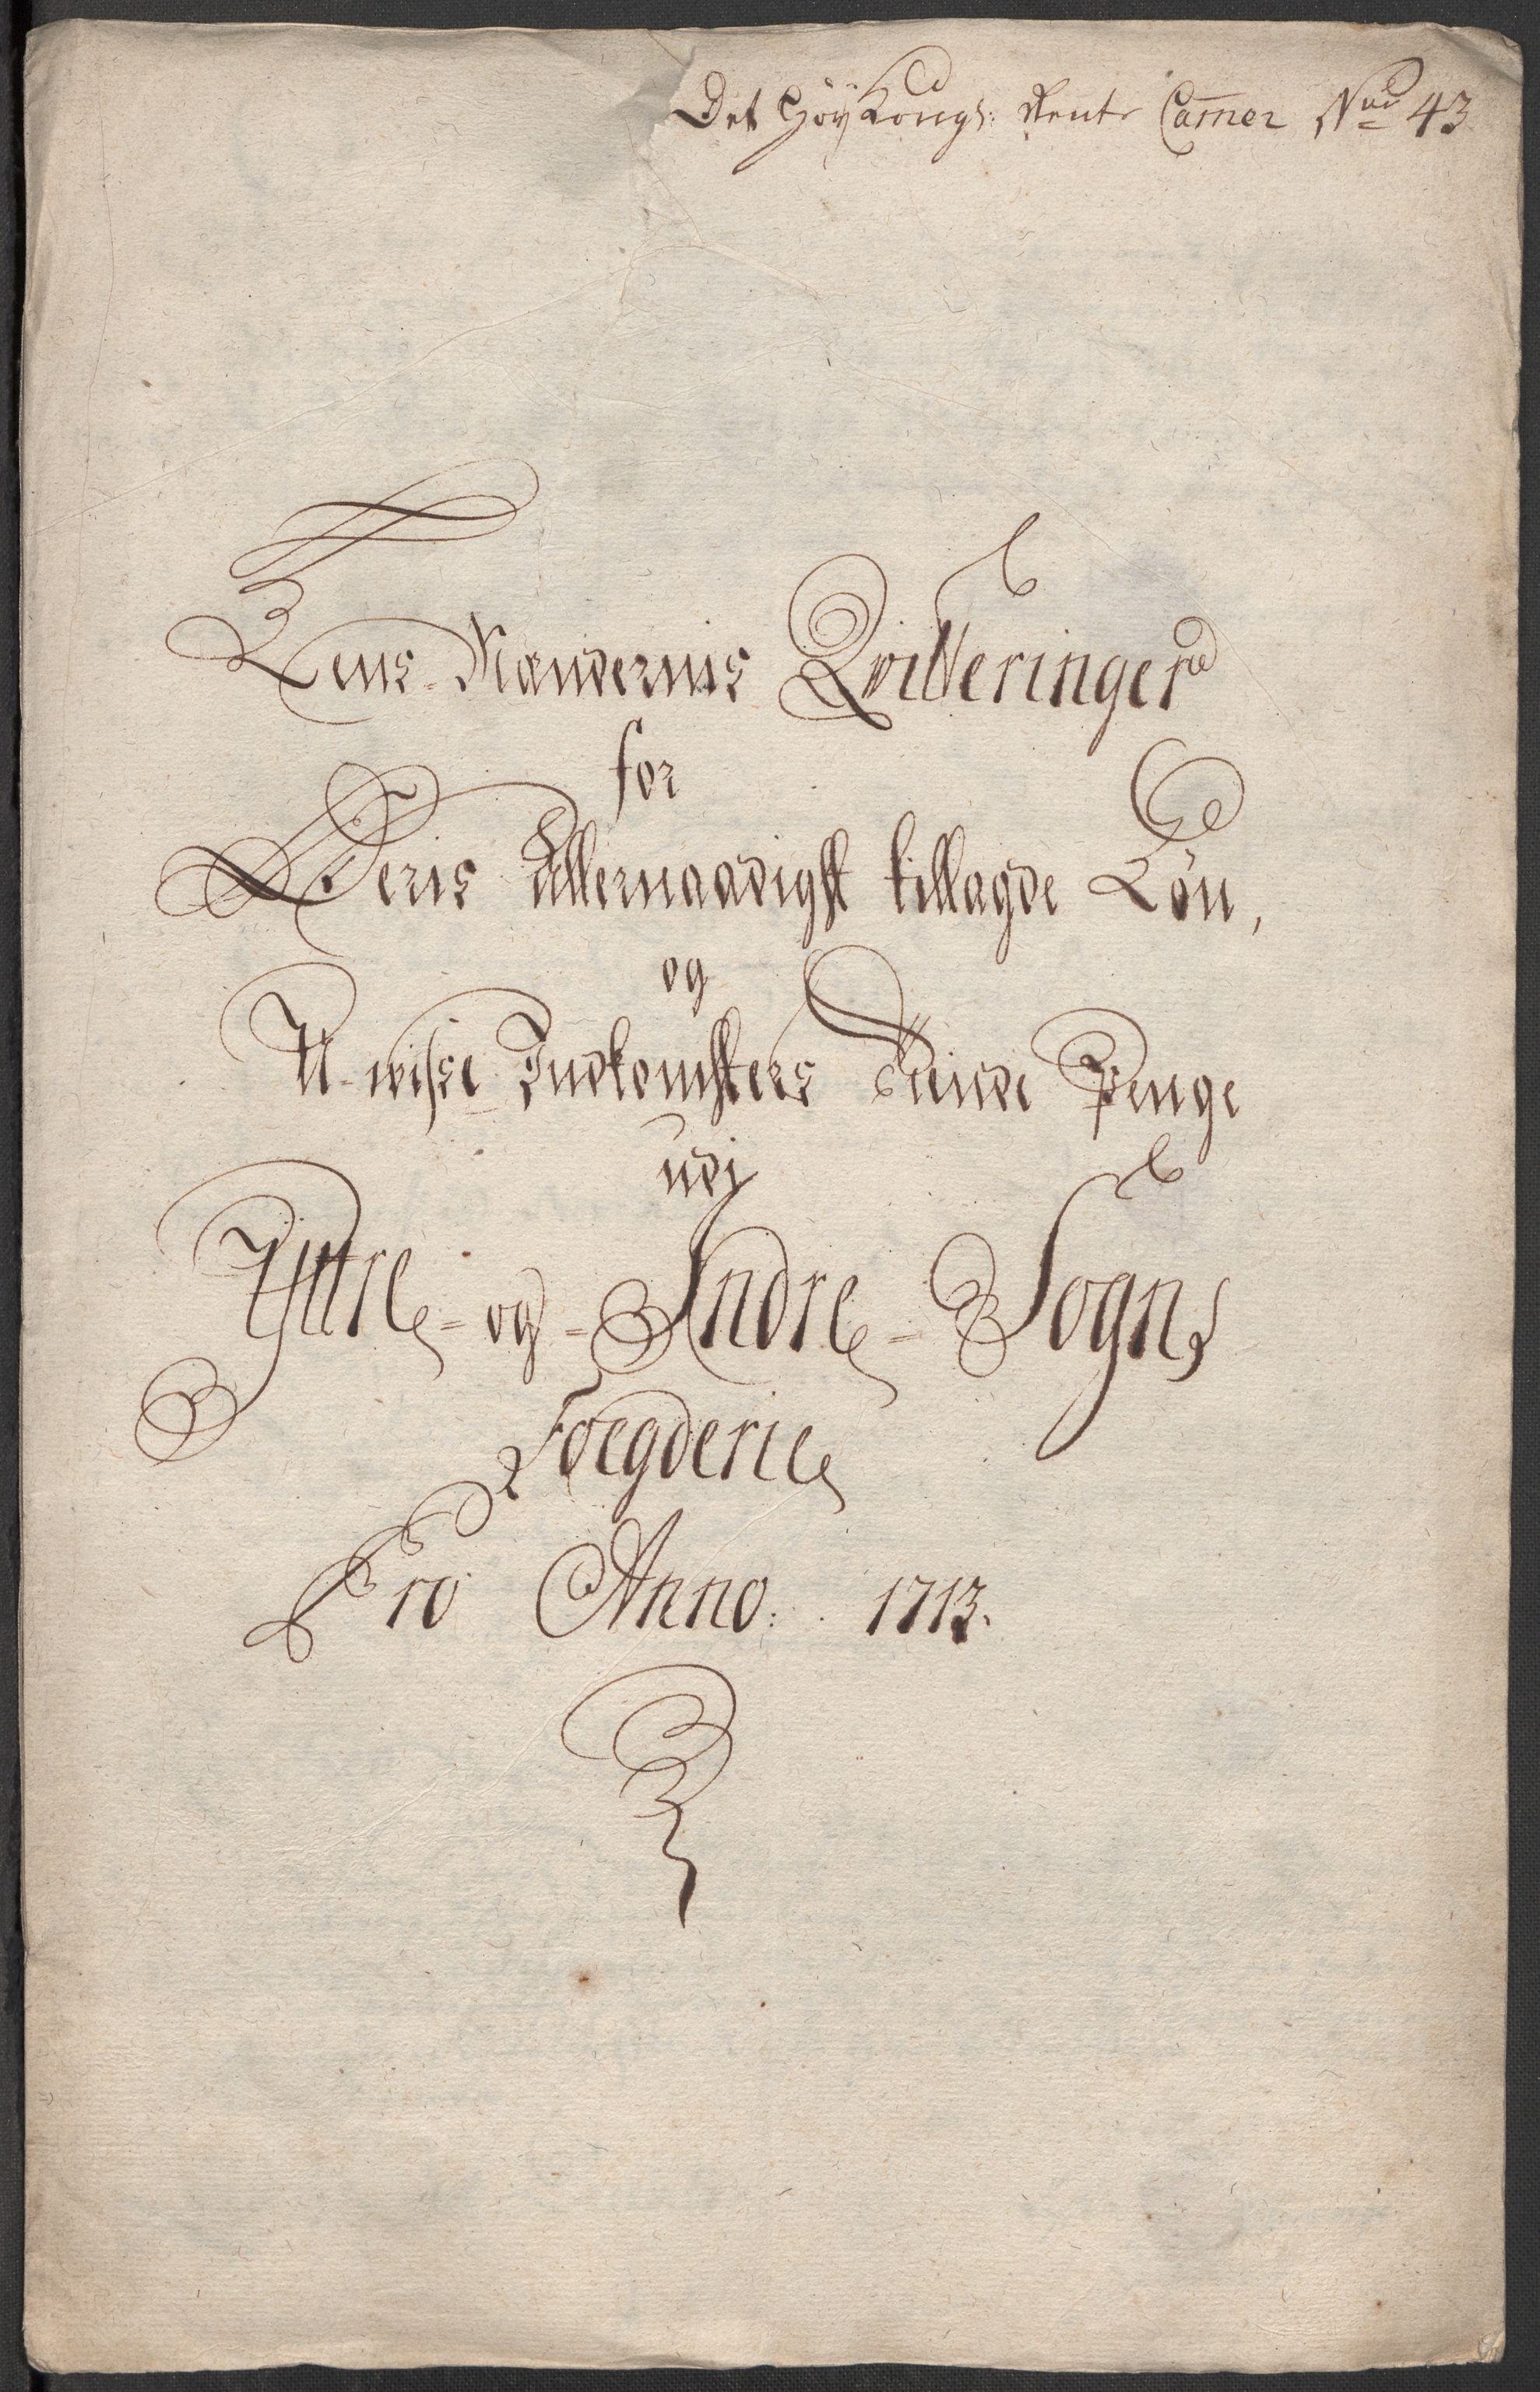 Det Höÿ Kongl: Rente Cammer No 43
Lens-Mændernis Qvitteringer
for
Deris Allernaadigst tillagde Lön,
og
U-wisse Indkomsters Tiende Penge
udj
Yttre- og- Indre- Sogns
Foegderie
Pro Anno. 1713.